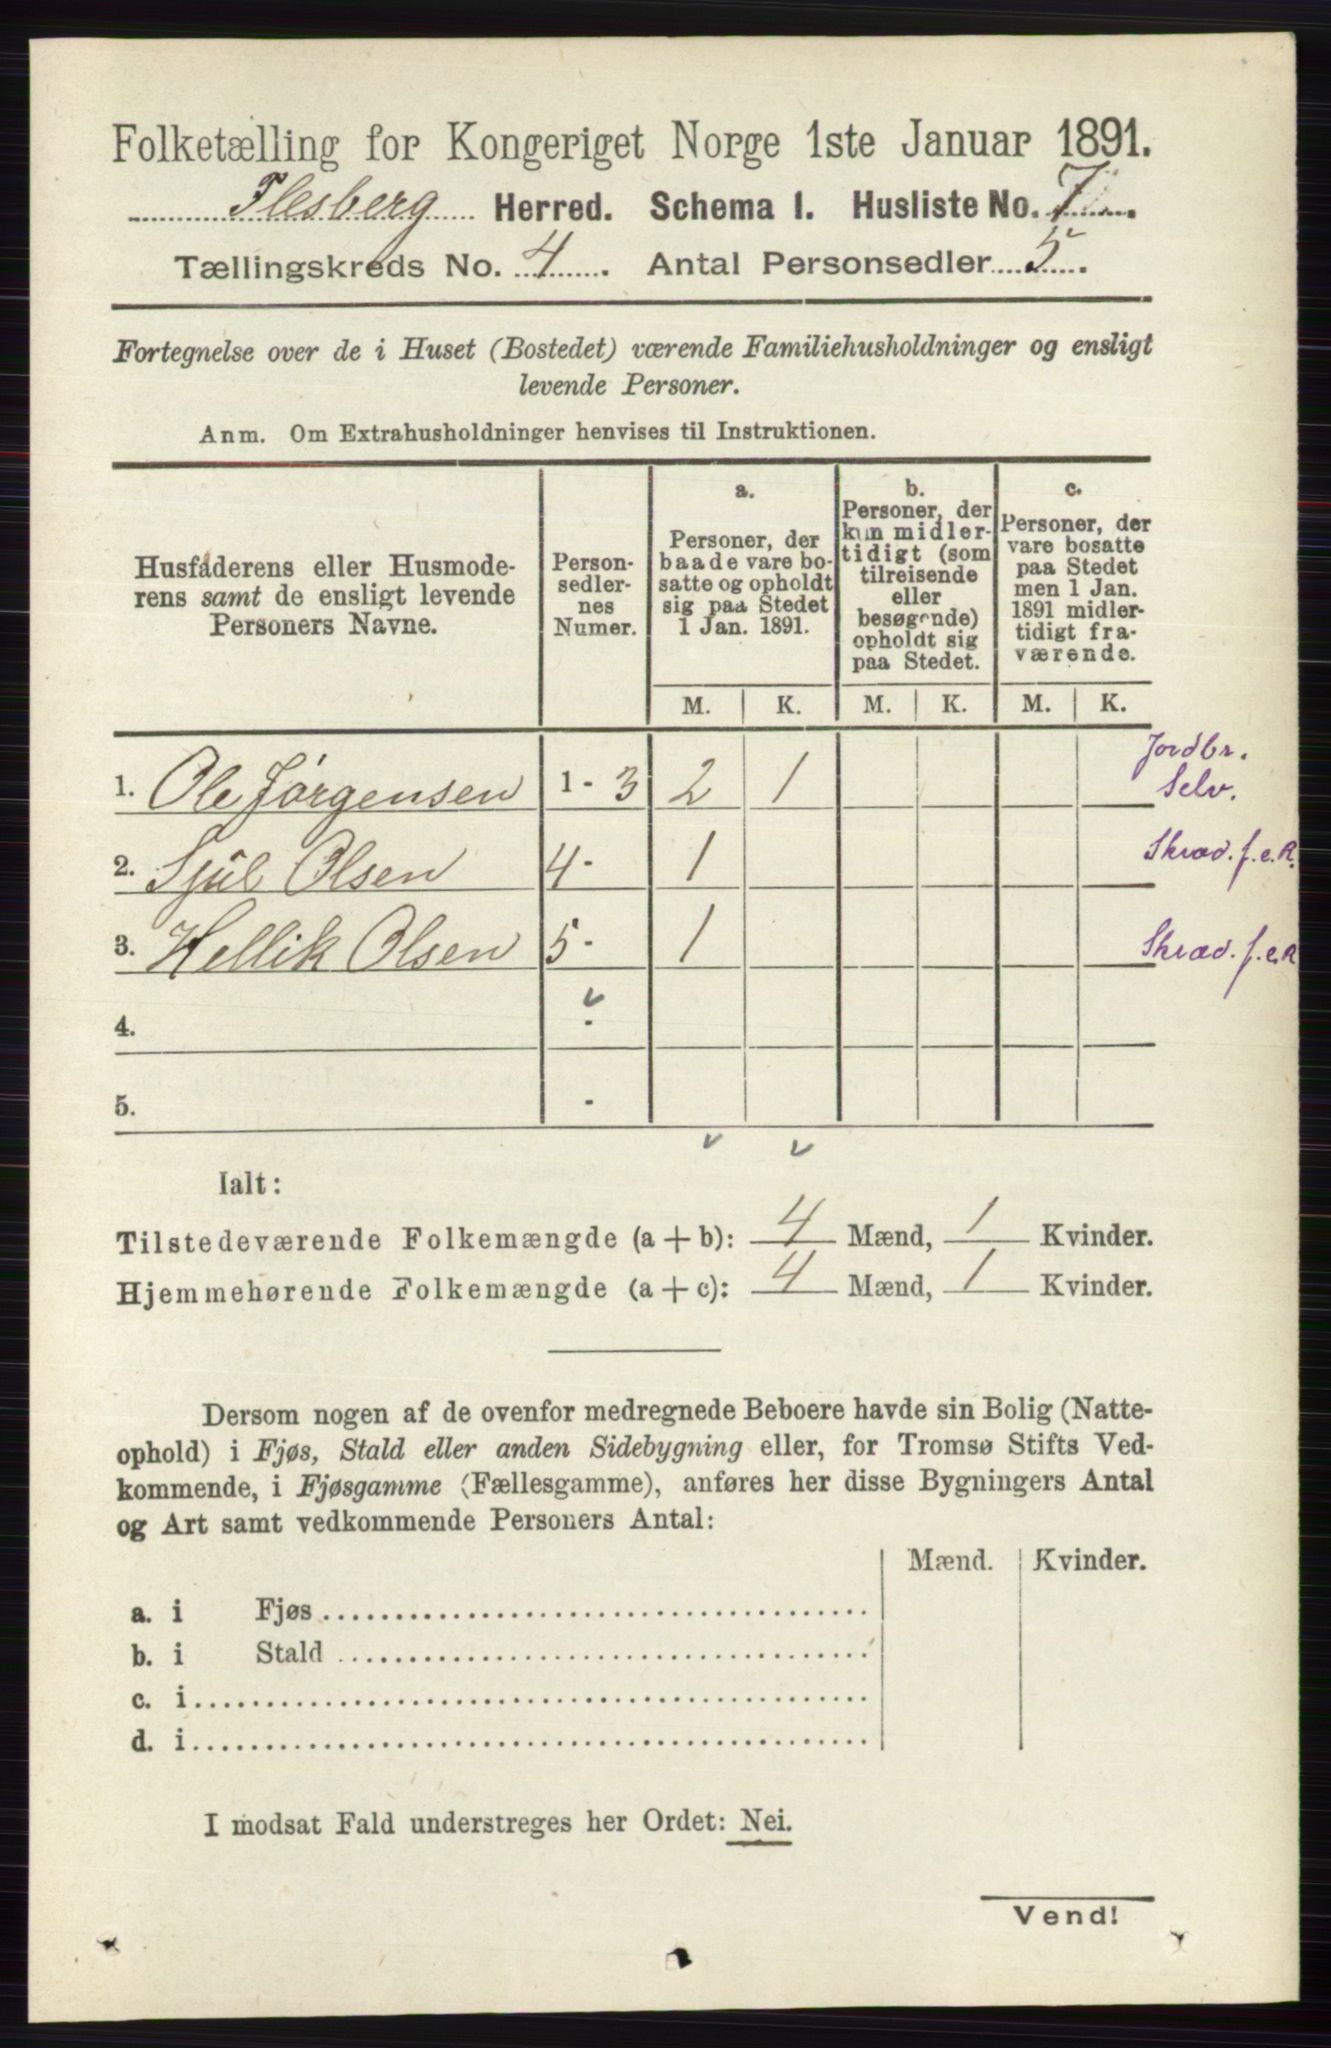 Folketælling for Kongeriget Norge 1ste Januar 1891.
Flesberg Herred. Schema I. Husliste No. 7.
Tællingskreds No. 4. Antal Personsedler 5.
Fortegnelse over de i Huset (Bostedet) værende Familiehusholdninger og ensligt
levende Personer.
Anm. Om Extrahusholdninger henvises til Instruktionen.
Husfaderens eller Husmode-
rens samt de ensligt levende
Personers Navne.
Person-
sedler-
nes
Numer.
a.
Personer, der
baade vare bo-
satte og opholdt
sig paa Stedet
1 Jan. 1891.
b.
Personer, der
kun midler-
tidigt (som
tilreisende
eller
besøgende)
opholdt sig
paa Stedet.
c.
Personer, der
vare bosatte
paa Stedet
men 1 Jan.
1891 midler-
tidigt fra-
værende.
M. K. M. K. M. K.
1. Ole Jörgensen 1 - 3 2 1 Jordbr.
Selv.
2. Sjül Olsen 4 - 1 Skræd. f. e. R.
3. Hellik Olsen 5 - 1 Skræd. f. e. R
4. -
5. -
Ialt:
Tilstedeværende Folkemængde (a + b): 4 Mænd, 1 Kvinder.
Hjemmehørende Folkemængde (a + c): 4 Mænd, 1 Kvinder.
Dersom nogen af de ovenfor medregnede Beboere havde sin Bolig (Natte-
ophold) i Fjøs, Stald eller anden Sidebygning eller, for Tromsø Stifts Ved-
kommende, i Fjøsgamme (Fællesgamme), anføres her disse Bygningers Antal
og Art samt vedkommende Personers Antal:
Mænd. Kvinder.
a. i Fjøs
b. i Stald
c. i
d. i
I modsat Fald understreges her Ordet: Nei.
Vend!